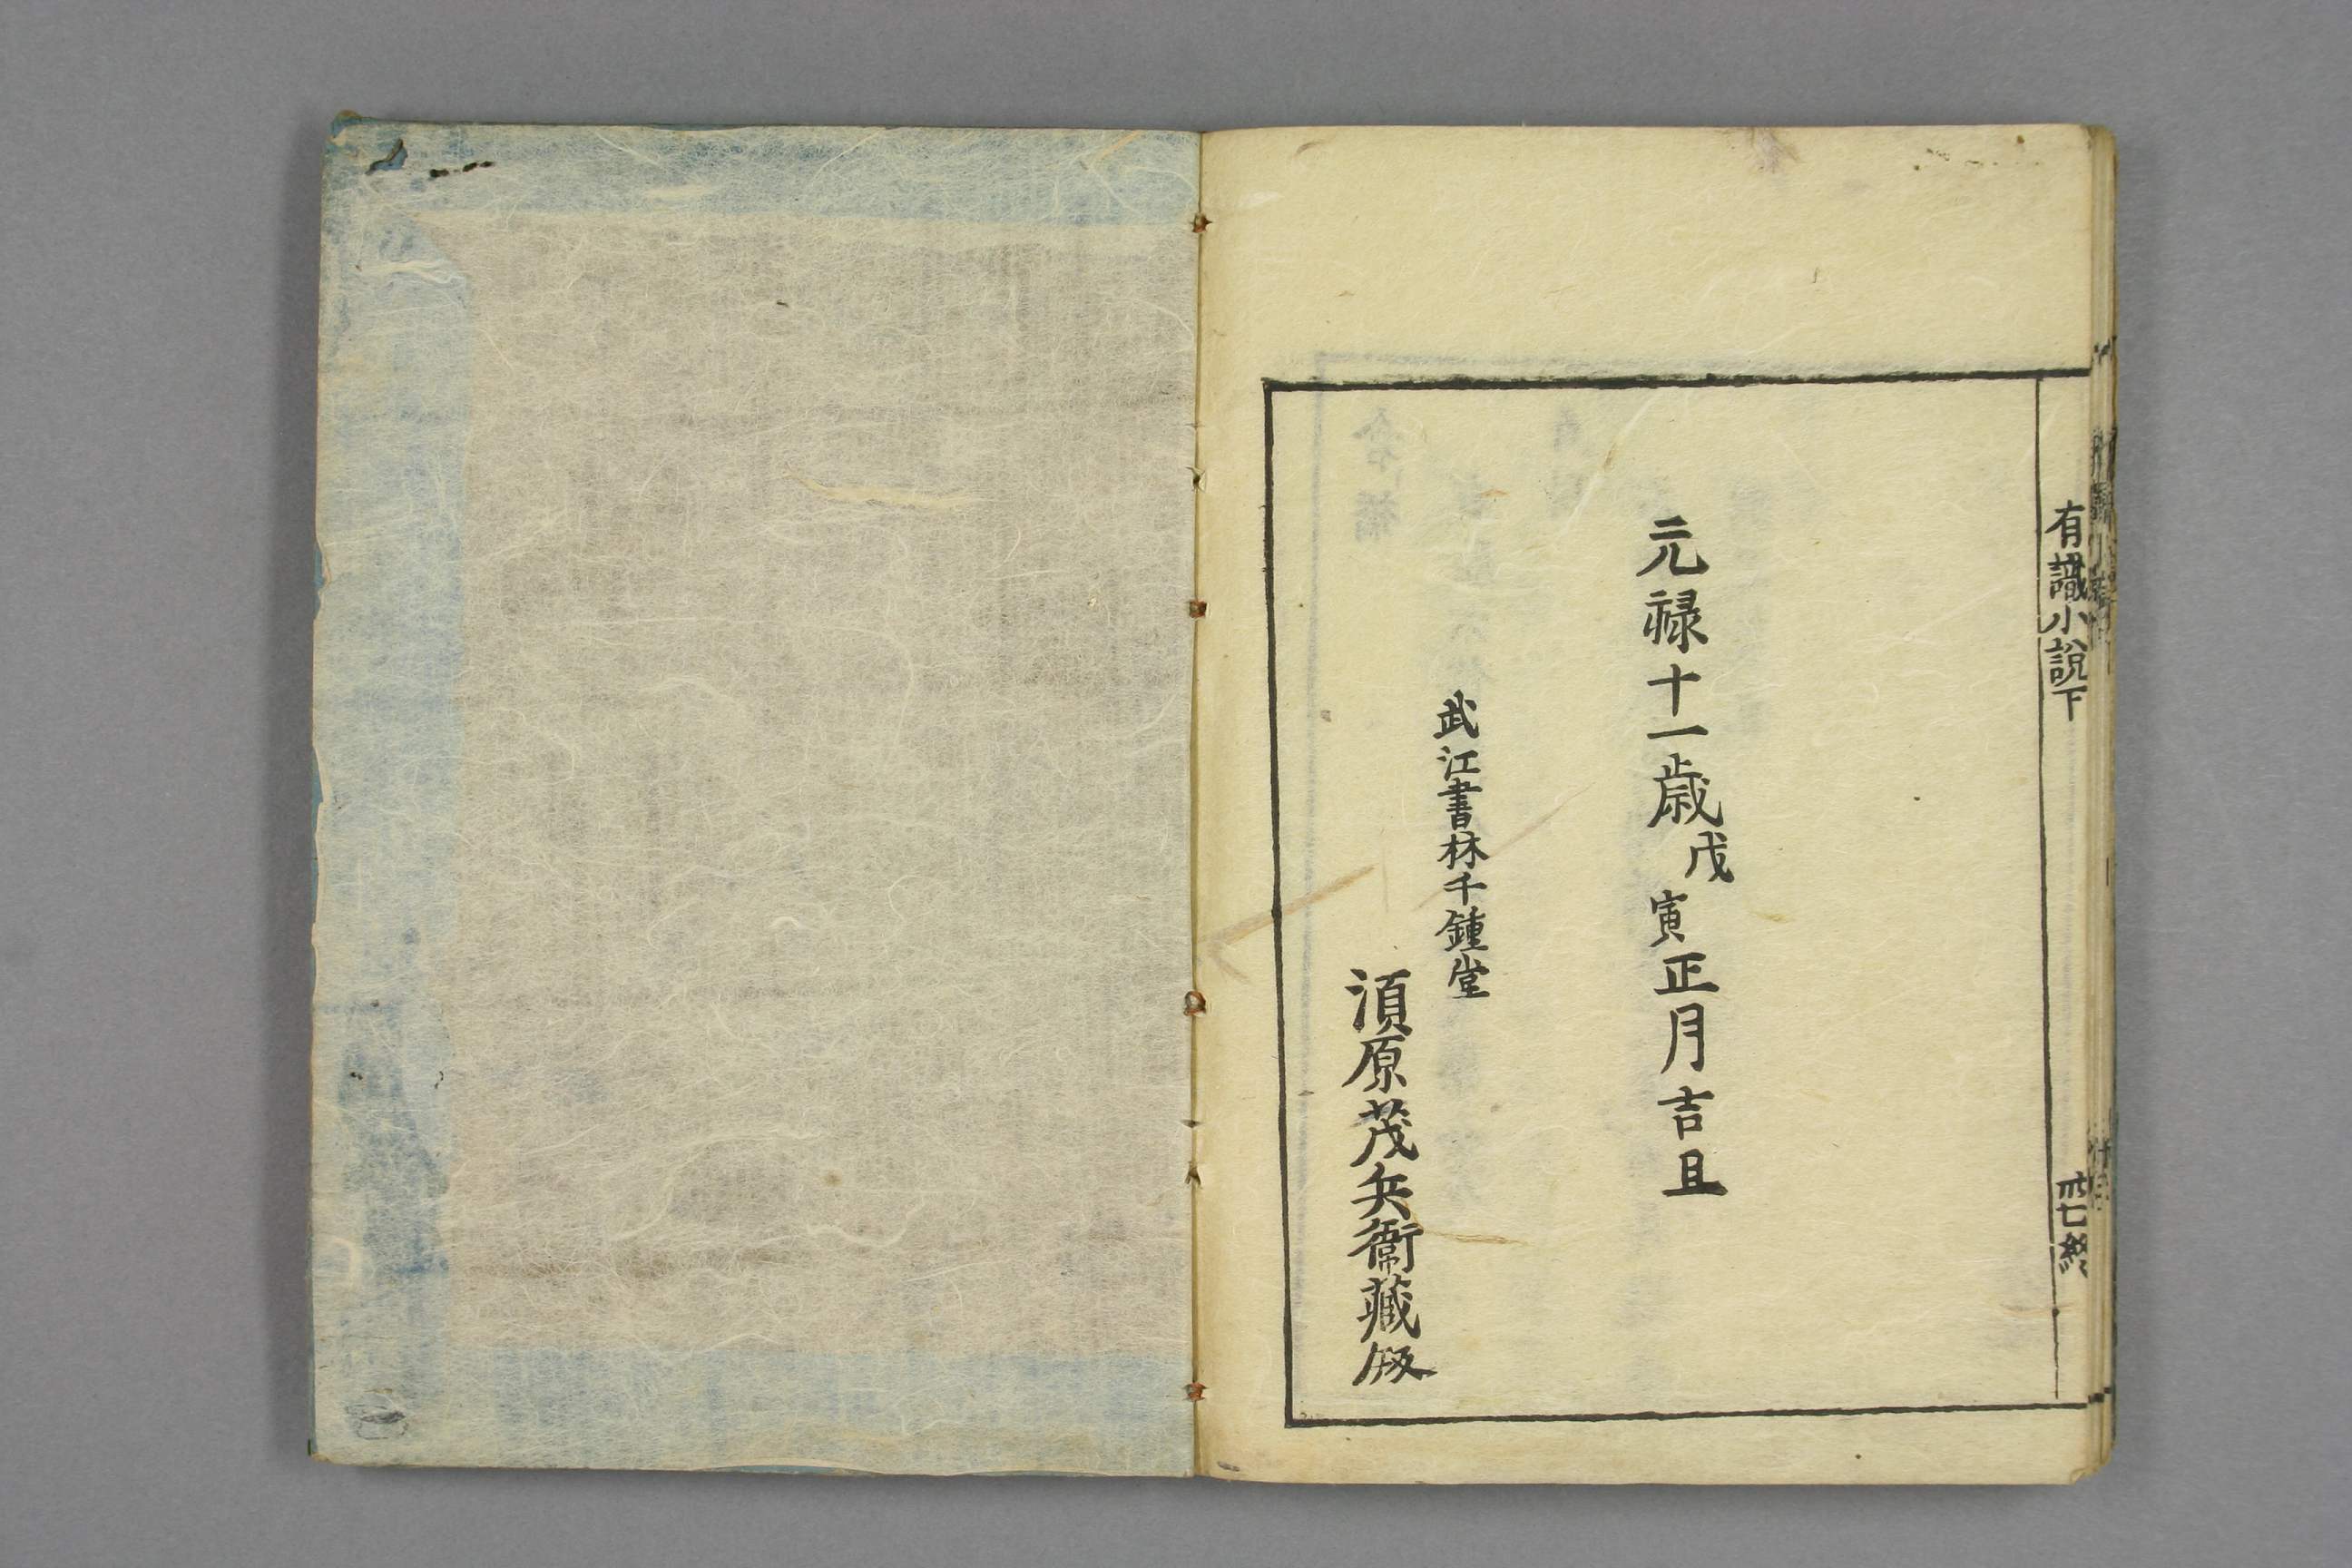 有識小說下
卌七終
元禄十一歳戊寅正月吉旦
武江書林千鍾堂
須原茂兵衞藏板